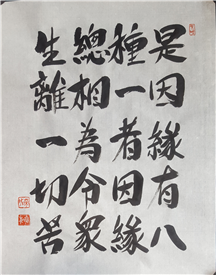 是因緣有八
種一者因緣
總相為令眾
生離一切苦